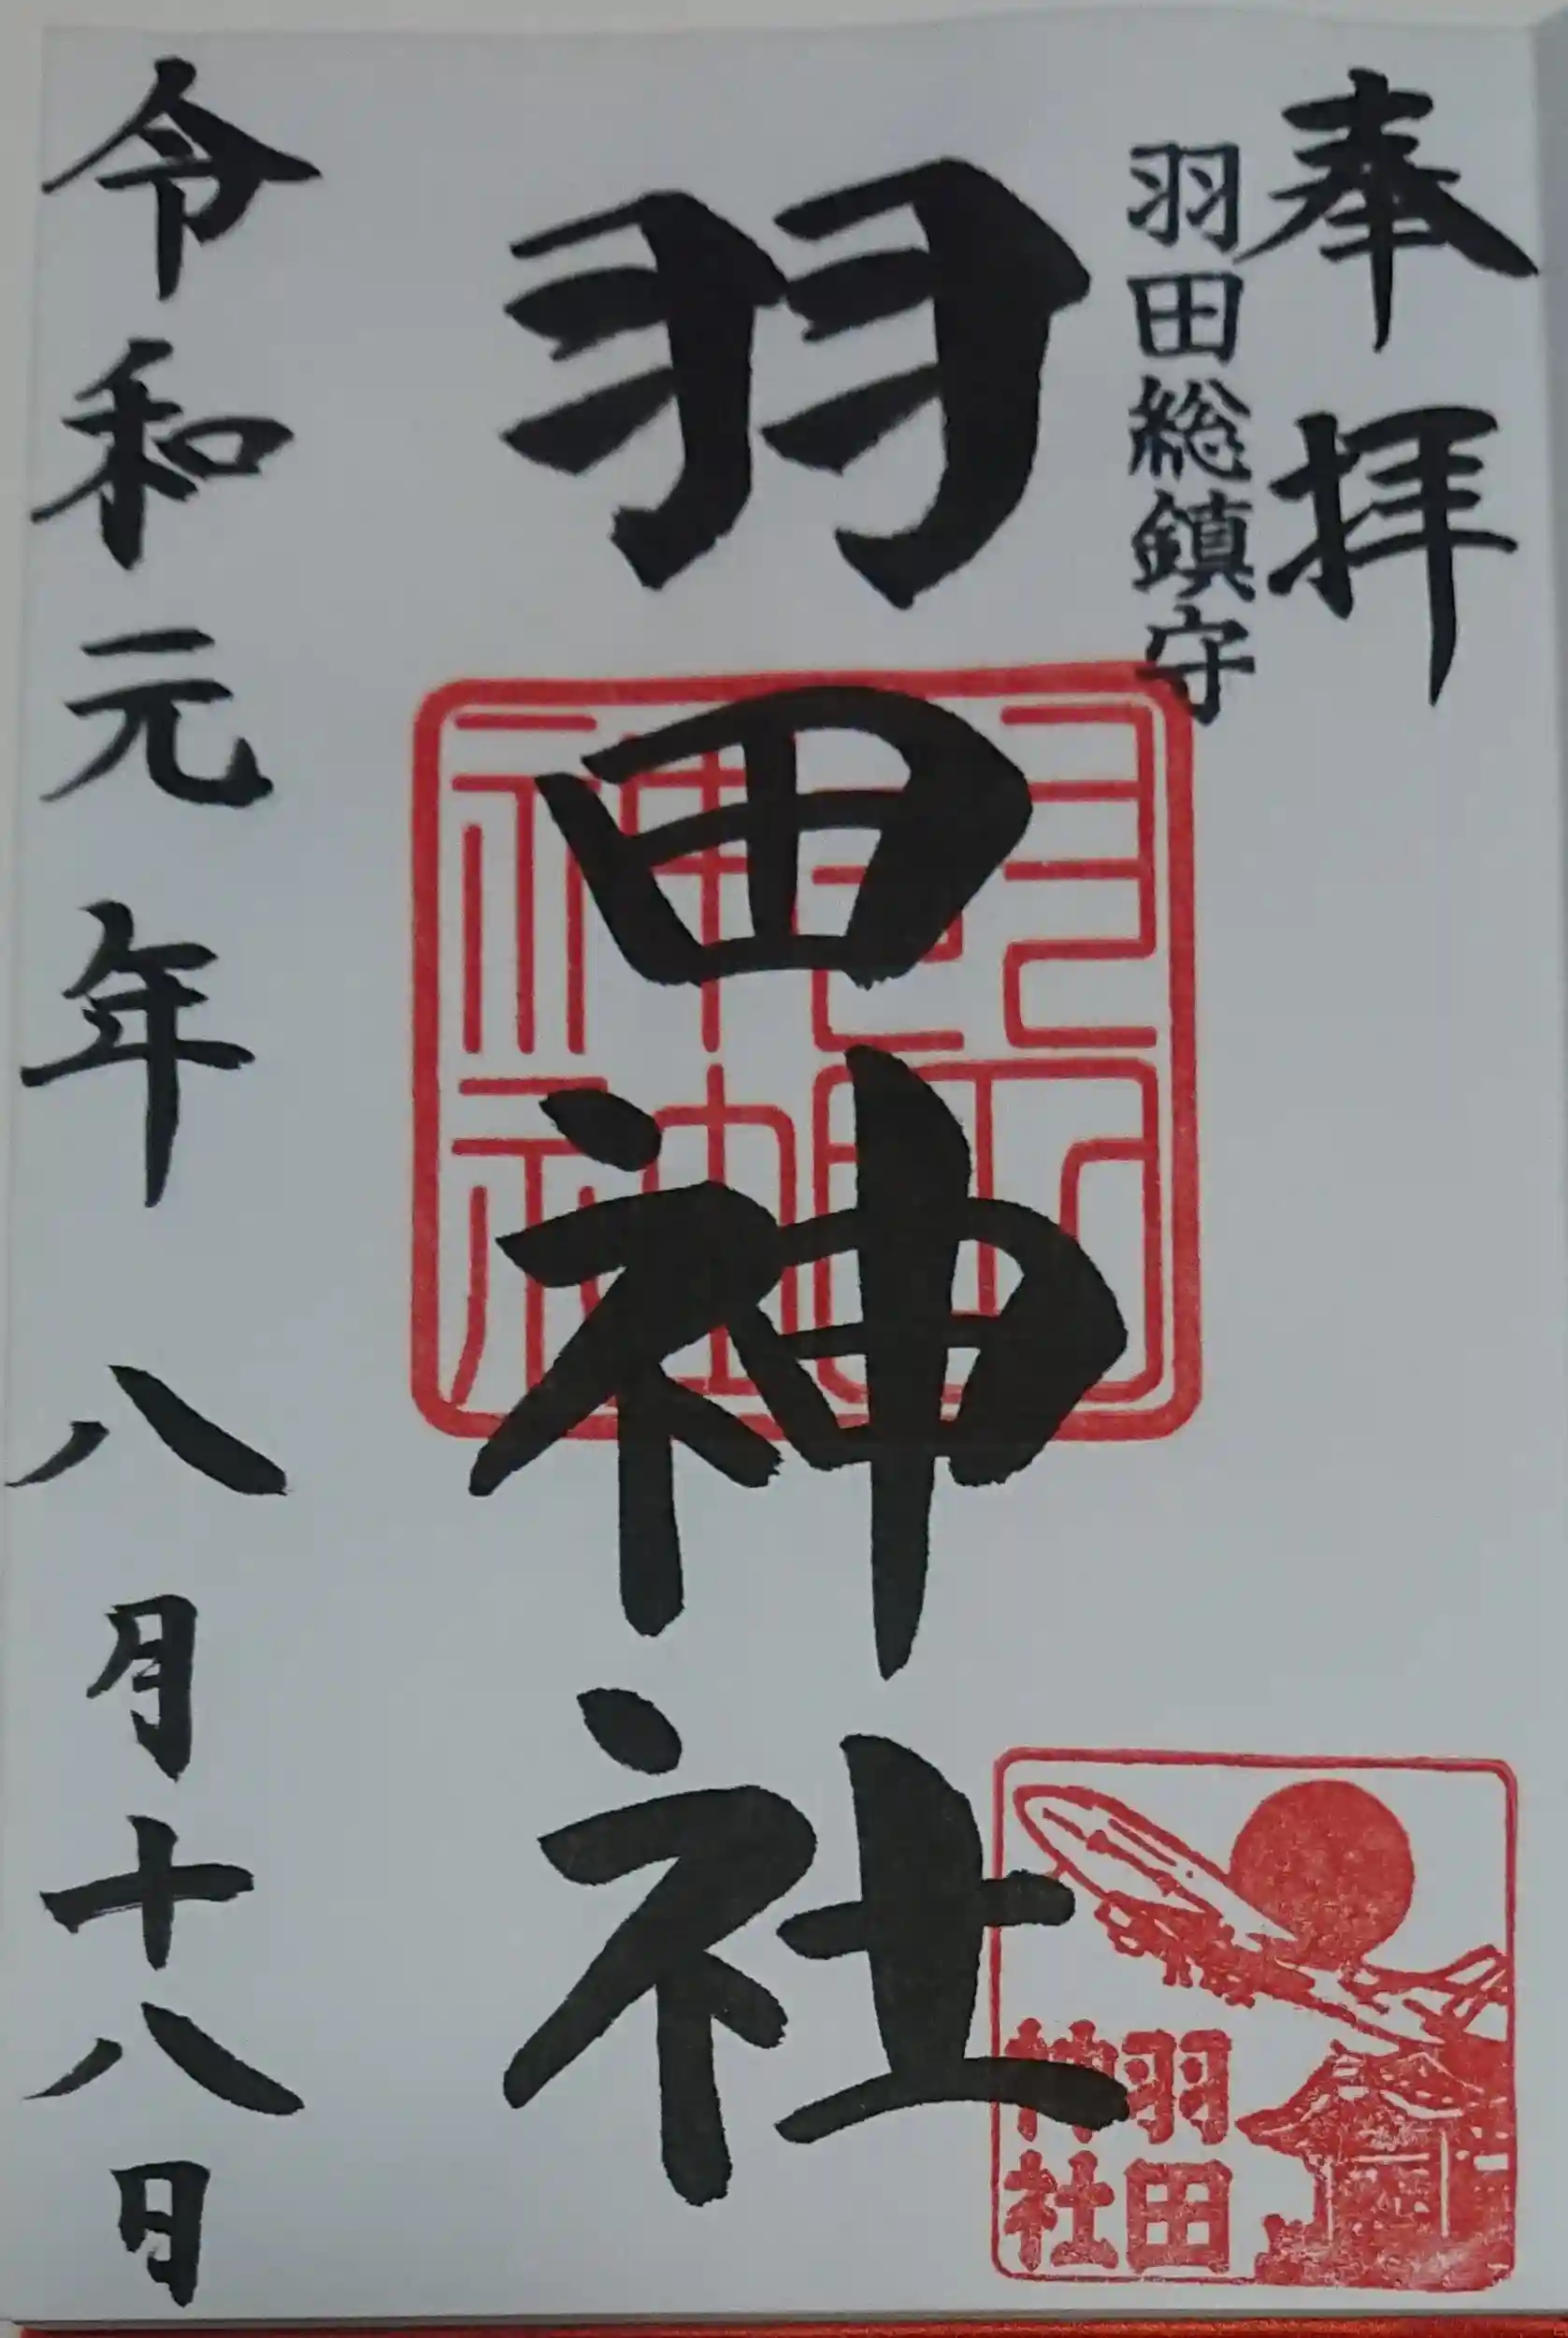 奉拝
羽田総鎮守
羽田神社
羽田
神社
令和元年八月十八日